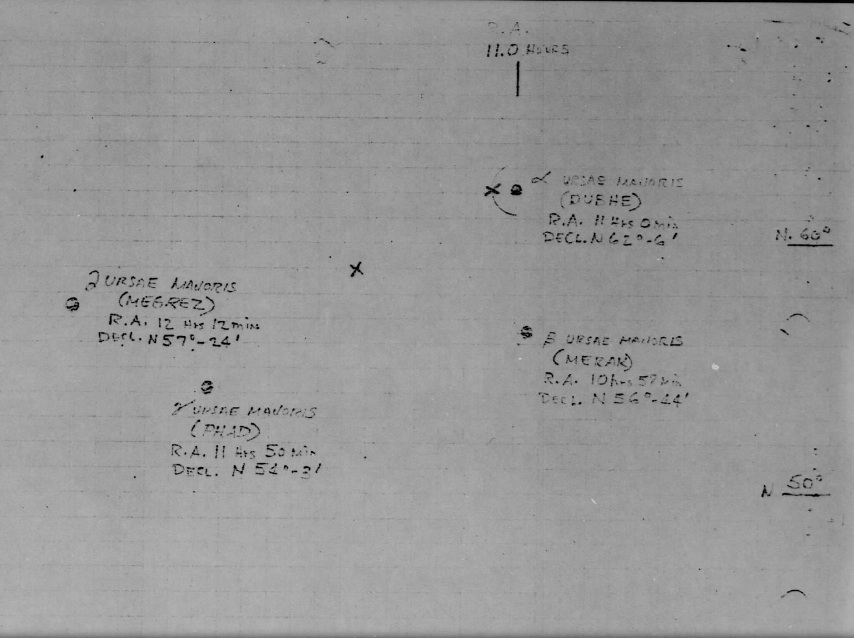 R.A.
11.0 HOURS
α URSAE MAJORIS
(DUBHE)
R.A. 11 Hrs 0 min
DECL. N 62°-6'
N. 60°
δ URSAE MAJORIS
(MEGREZ)
R.A. 12 Hrs 12 min
DECL. N 57°-24'
β URSAE MAJORIS
(MERAK)
R.A. 10 hrs 59 Min
DECL. N 56°-44'
γ URSAE MAJORIS
(PHAD)
R.A. 11 Hrs 50 Min
DECL. N 54°-3'
N 50°